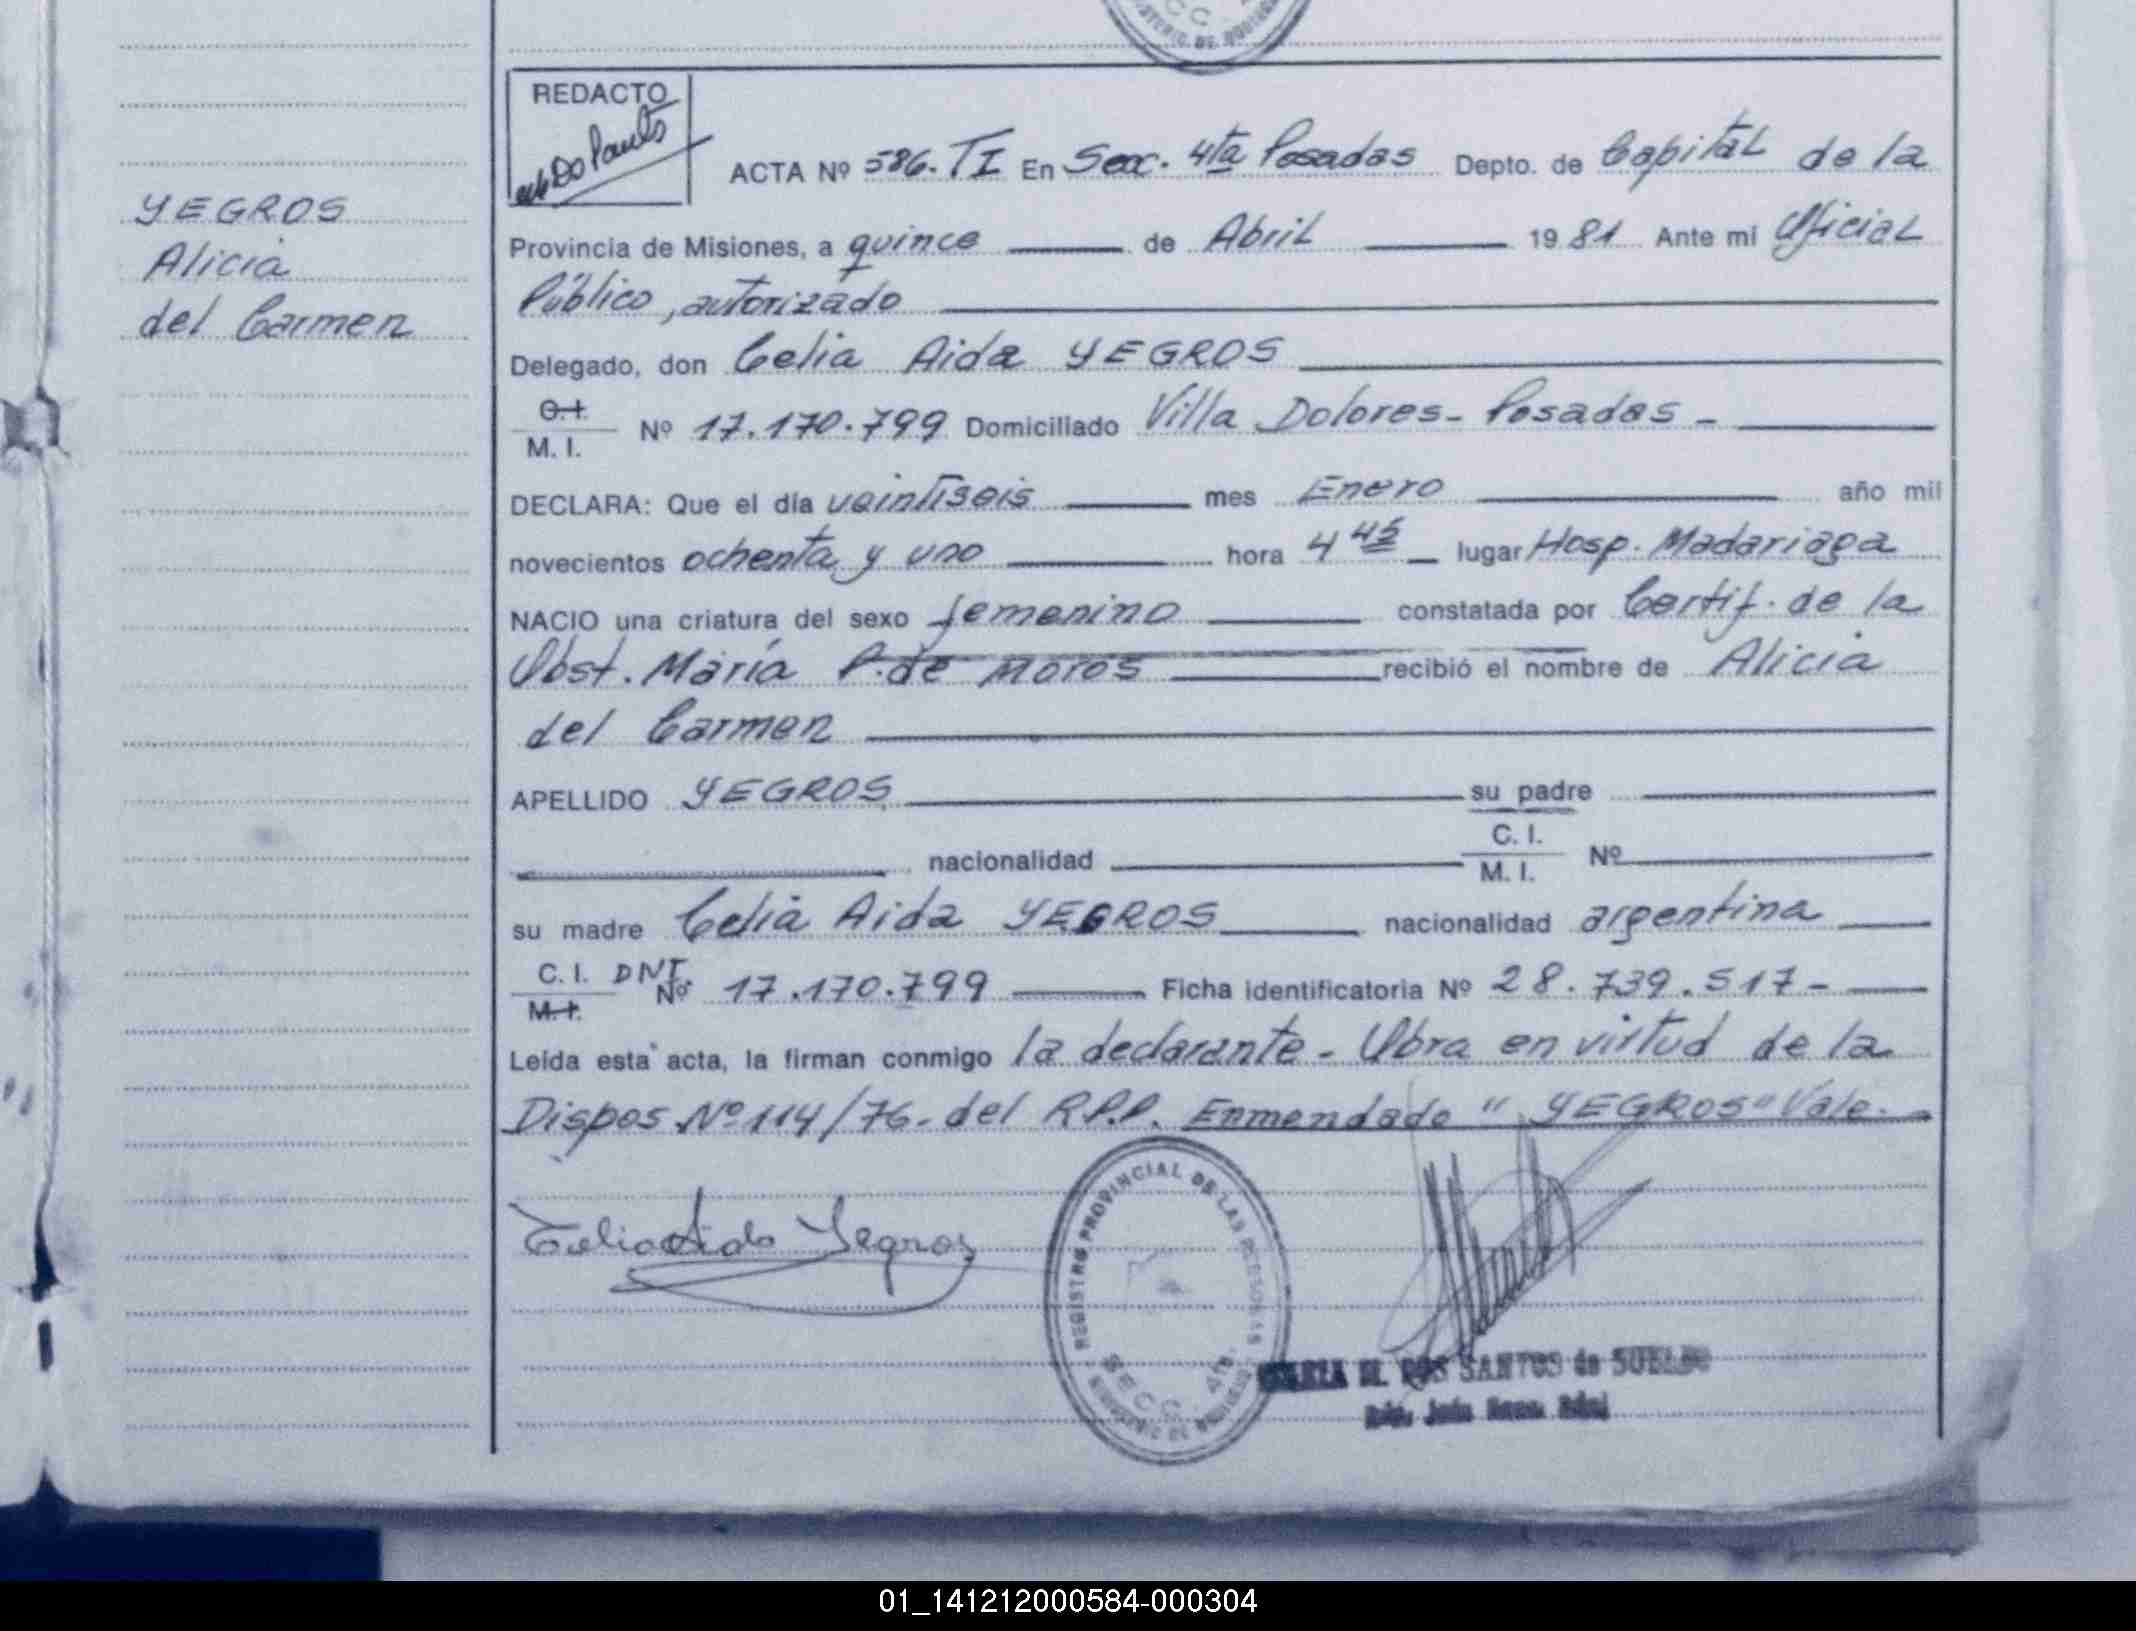 REDACTO
ACTA Nº 586. TI En Secc. 4ta Posadas Depto. de Capital de la
Provincia de Misiones, a quince de Abril 1981 Ante mi Oficial
Público, autorizado
Delegado, don Celia Aida YEGROS
C.I. M. I. Nº 17.170.799 Domiciliado Villa Dolores - Posadas -
DECLARA: Que el día veintiseis mes Enero año mil
novecientos ochenta y uno hora 4 45 lugar Hosp. Madariaga
NACIO una criatura del sexo femenino constatada por Certif. de la
Obst. María P. de MOROS recibió el nombre de Alicia
del Carmen
APELLIDO YEGROS su padre
nacionalidad C. I. M. I. Nº
su madre Celia Aida YEGROS nacionalidad argentina
C. I. M. I. DNI Nº 17.170.799 Ficha identificatoria Nº 28.739.517-
Leída esta acta, la firman conmigo la declarante - Obra en virtud de la
Dispos. Nº 114/76. del R.P.P. Enmendado "YEGROS" Vale.
Celia Aida Yegros
REGISTRO PROVINCIAL DE LAS PERSONAS
SECC. 4ta.
DOS SANTOS de SUELDO
YEGROS
Alicia
del Carmen
01_141212000584-000304